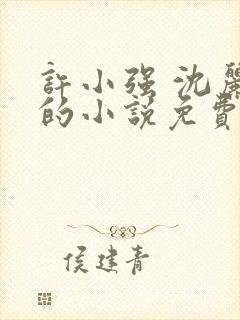 許小强 沈麗
的小説免費
侯建青